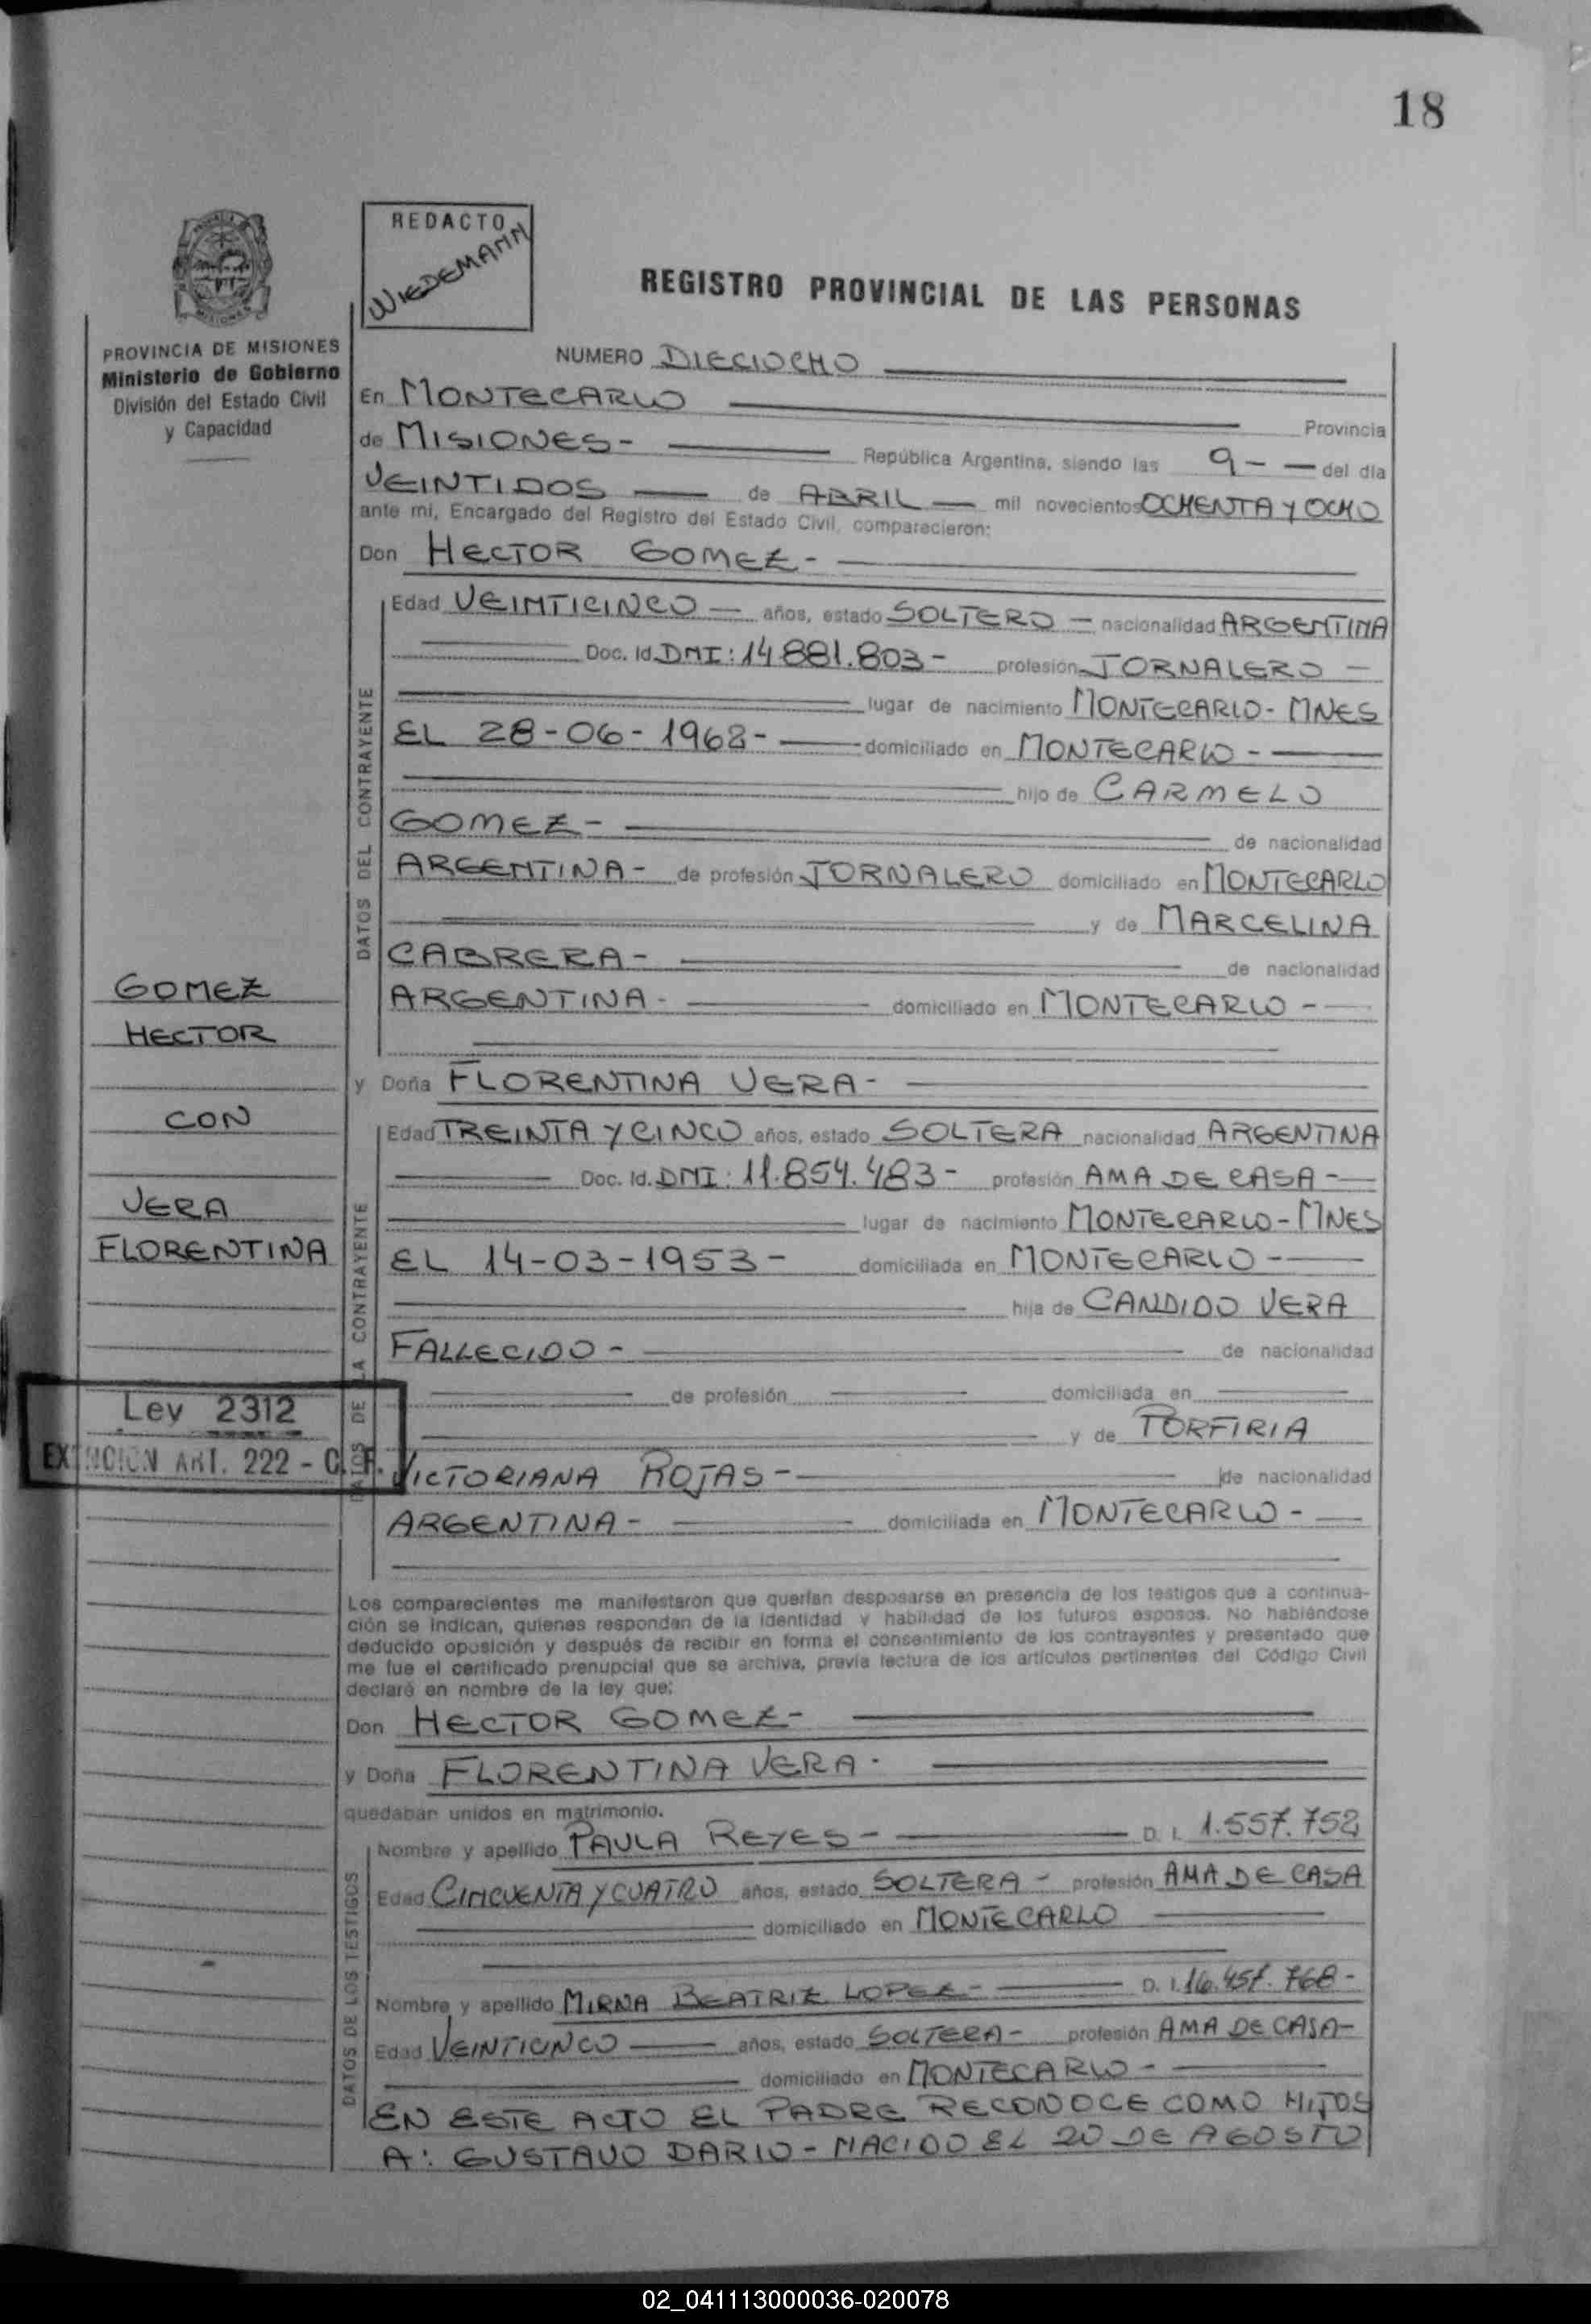 18
REDACTO
WIEDEMANN
REGISTRO PROVINCIAL DE LAS PERSONAS
PROVINCIA DE MISIONES
Ministerio de Gobierno
División del Estado Civil
y Capacidad
NUMERO DIECIOCHO
En MONTECARLO Provincia
de MISIONES- República Argentina, siendo las 9- — del día
VEINTIDOS — de ABRIL — mil novecientos OCHENTA Y OCHO
ante mí, Encargado del Registro del Estado Civil, comparecieron:
Don HECTOR GOMEZ-
DATOS DEL CONTRAYENTE
Edad VEINTICINCO — años, estado SOLTERO — nacionalidad ARGENTINA
Doc. Id. DNI: 14.881.803- profesión JORNALERO —
lugar de nacimiento MONTECARLO- MNES
EL 28-06-1962- — domiciliado en MONTECARLO -
hijo de CARMELO
GOMEZ- de nacionalidad
ARGENTINA- de profesión JORNALERO domiciliado en MONTECARLO
y de MARCELINA
CABRERA- de nacionalidad
ARGENTINA- domiciliado en MONTECARLO -
y Doña FLORENTINA VERA-
GOMEZ
HECTOR
CON
VERA
FLORENTINA
Ley 2312
EXTINCION ART. 222 - C. F.
DATOS DE LA CONTRAYENTE
Edad TREINTA Y CINCO años, estado SOLTERA nacionalidad ARGENTINA
Doc. Id. DNI: 11.854.483- profesión AMA DE CASA -
lugar de nacimiento MONTECARLO-MNES
EL 14-03-1953- domiciliada en MONTECARLO -
hija de CANDIDO VERA
FALLECIDO - de nacionalidad
de profesión domiciliada en
y de PORFIRIA
VICTORIANA ROJAS - de nacionalidad
ARGENTINA- domiciliada en MONTECARLO -
Los comparecientes me manifestaron que querían desposarse en presencia de los testigos que a continua-
ción se indican, quienes responden de la identidad y habilidad de los futuros esposos. No habiéndose
deducido oposición y después de recibir en forma el consentimiento de los contrayentes y presentado que
me fue el certificado prenupcial que se archiva, previa lectura de los artículos pertinentes del Código Civil
declaré en nombre de la ley que:
Don HECTOR GOMEZ-
y Doña FLORENTINA VERA-
quedaban unidos en matrimonio.
DATOS DE LOS TESTIGOS
Nombre y apellido PAULA REYES- D. I. 1.557.752
Edad CINCUENTA Y CUATRO años, estado SOLTERA - profesión AMA DE CASA
domiciliado en MONTECARLO
Nombre y apellido MIRNA BEATRIZ LOPEZ- D. I. 16.457.768-
Edad VEINTICINCO años, estado SOLTERA- profesión AMA DE CASA-
domiciliado en MONTECARLO -
EN ESTE ACTO EL PADRE RECONOCE COMO HIJOS
A: GUSTAVO DARIO - NACIDO EL 20 DE AGOSTO
02_041113000036-020078